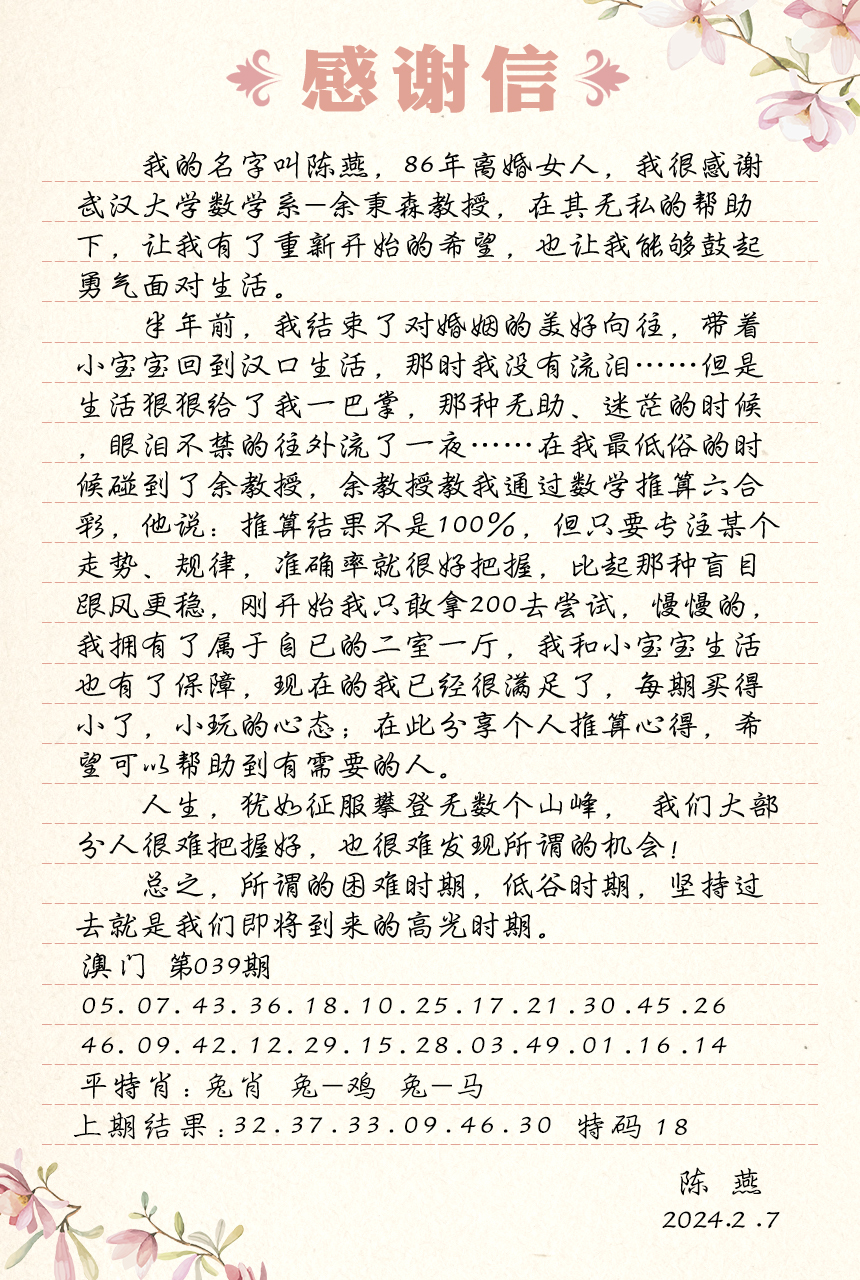 感谢信
我的名字叫陈燕，86年离婚女人，我很感谢
武汉大学数学系—余秉森教授，在其无私的帮助
下，让我有了重新开始的希望，也让我能够鼓起
勇气面对生活。
半年前，我结束了对婚姻的美好向往，带着
小宝宝回到汉口生活，那时我没有流泪……但是
生活狠狠给了我一巴掌，那种无助、迷茫的时候
，眼泪不禁的往外流了一夜……在我最低俗的时
候碰到了余教授，余教授教我通过数学推算六合
彩，他说：推算结果不是100%，但只要专注某个
走势、规律，准确率就很好把握，比起那种盲目
跟风更稳，刚开始我只敢拿200去尝试，慢慢的，
我拥有了属于自已的二室一厅，我和小宝宝生活
也有了保障，现在的我已经很满足了，每期买得
小了，小玩的心态；在此分享个人推算心得，希
望可以帮助到有需要的人。
人生，犹如征服攀登无数个山峰， 我们大部
分人很难把握好，也很难发现所谓的机会！
总之，所谓的困难时期，低谷时期，坚持过
去就是我们即将到来的高光时期。
澳门 第039期
05.07.43.36.18.10.25.17.21.30.45.26
46.09.42.12.29.15.28.03.49.01.16.14
平特肖：兔肖 兔—鸡 兔—马
上期结果：32.37.33.09.46.30 特码18
陈 燕
2024.2.7